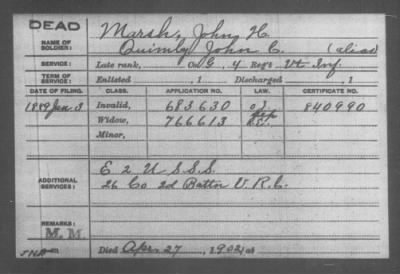 DEAD
NAME OF SOLDIER: Marsh, John H.
Quimby John C. (alias)
SERVICE: Late rank, Co G, 4 Reg't Vt Inf.
TERM OF SERVICE: Enlisted , 1 Discharged , 1
DATE OF FILING. CLASS. APPLICATION NO. LAW. CERTIFICATE NO.
1889 Jan 3 Invalid, 683630 840990
Widow, 766613
Minor,
ADDITIONAL SERVICES: E 2 U S S S.
26 Co 2d Batt'n V. R. C.
REMARKS: M. M.
Died Apr. 27, 1902, at